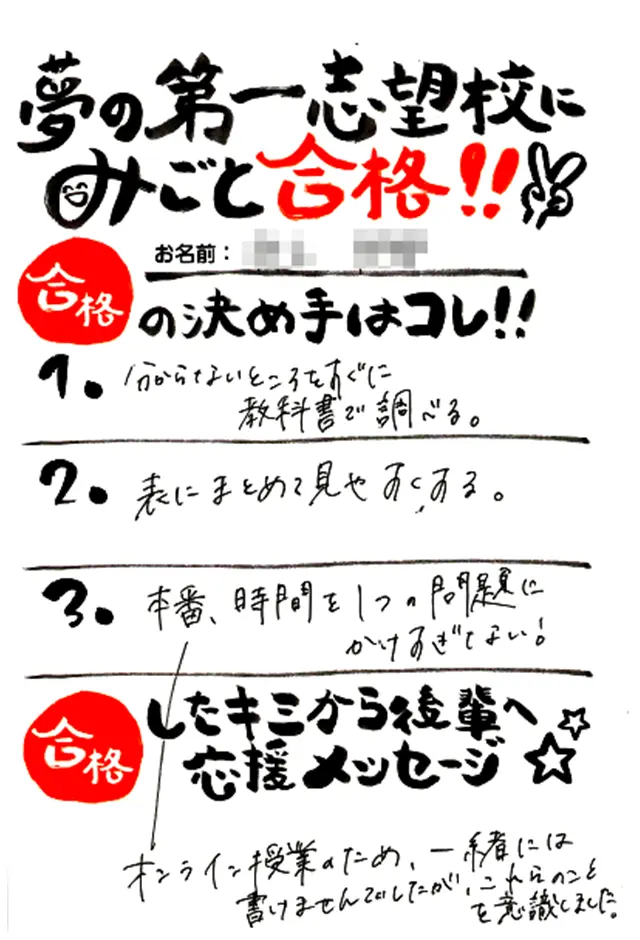 夢の第一志望校に
みごと合格!!
お名前：
合格の決め手はコレ!!
1. 分からないところをすぐに
教科書で調べる。
2. 表にまとめて見やすくする。
3. 本番、時間を1つの問題に
かけすぎてない!
合格したキミから後輩へ
応援メッセージ
オンライン授業のため、一緒には
書けませんでしたが、これらのこと
を意識しました。